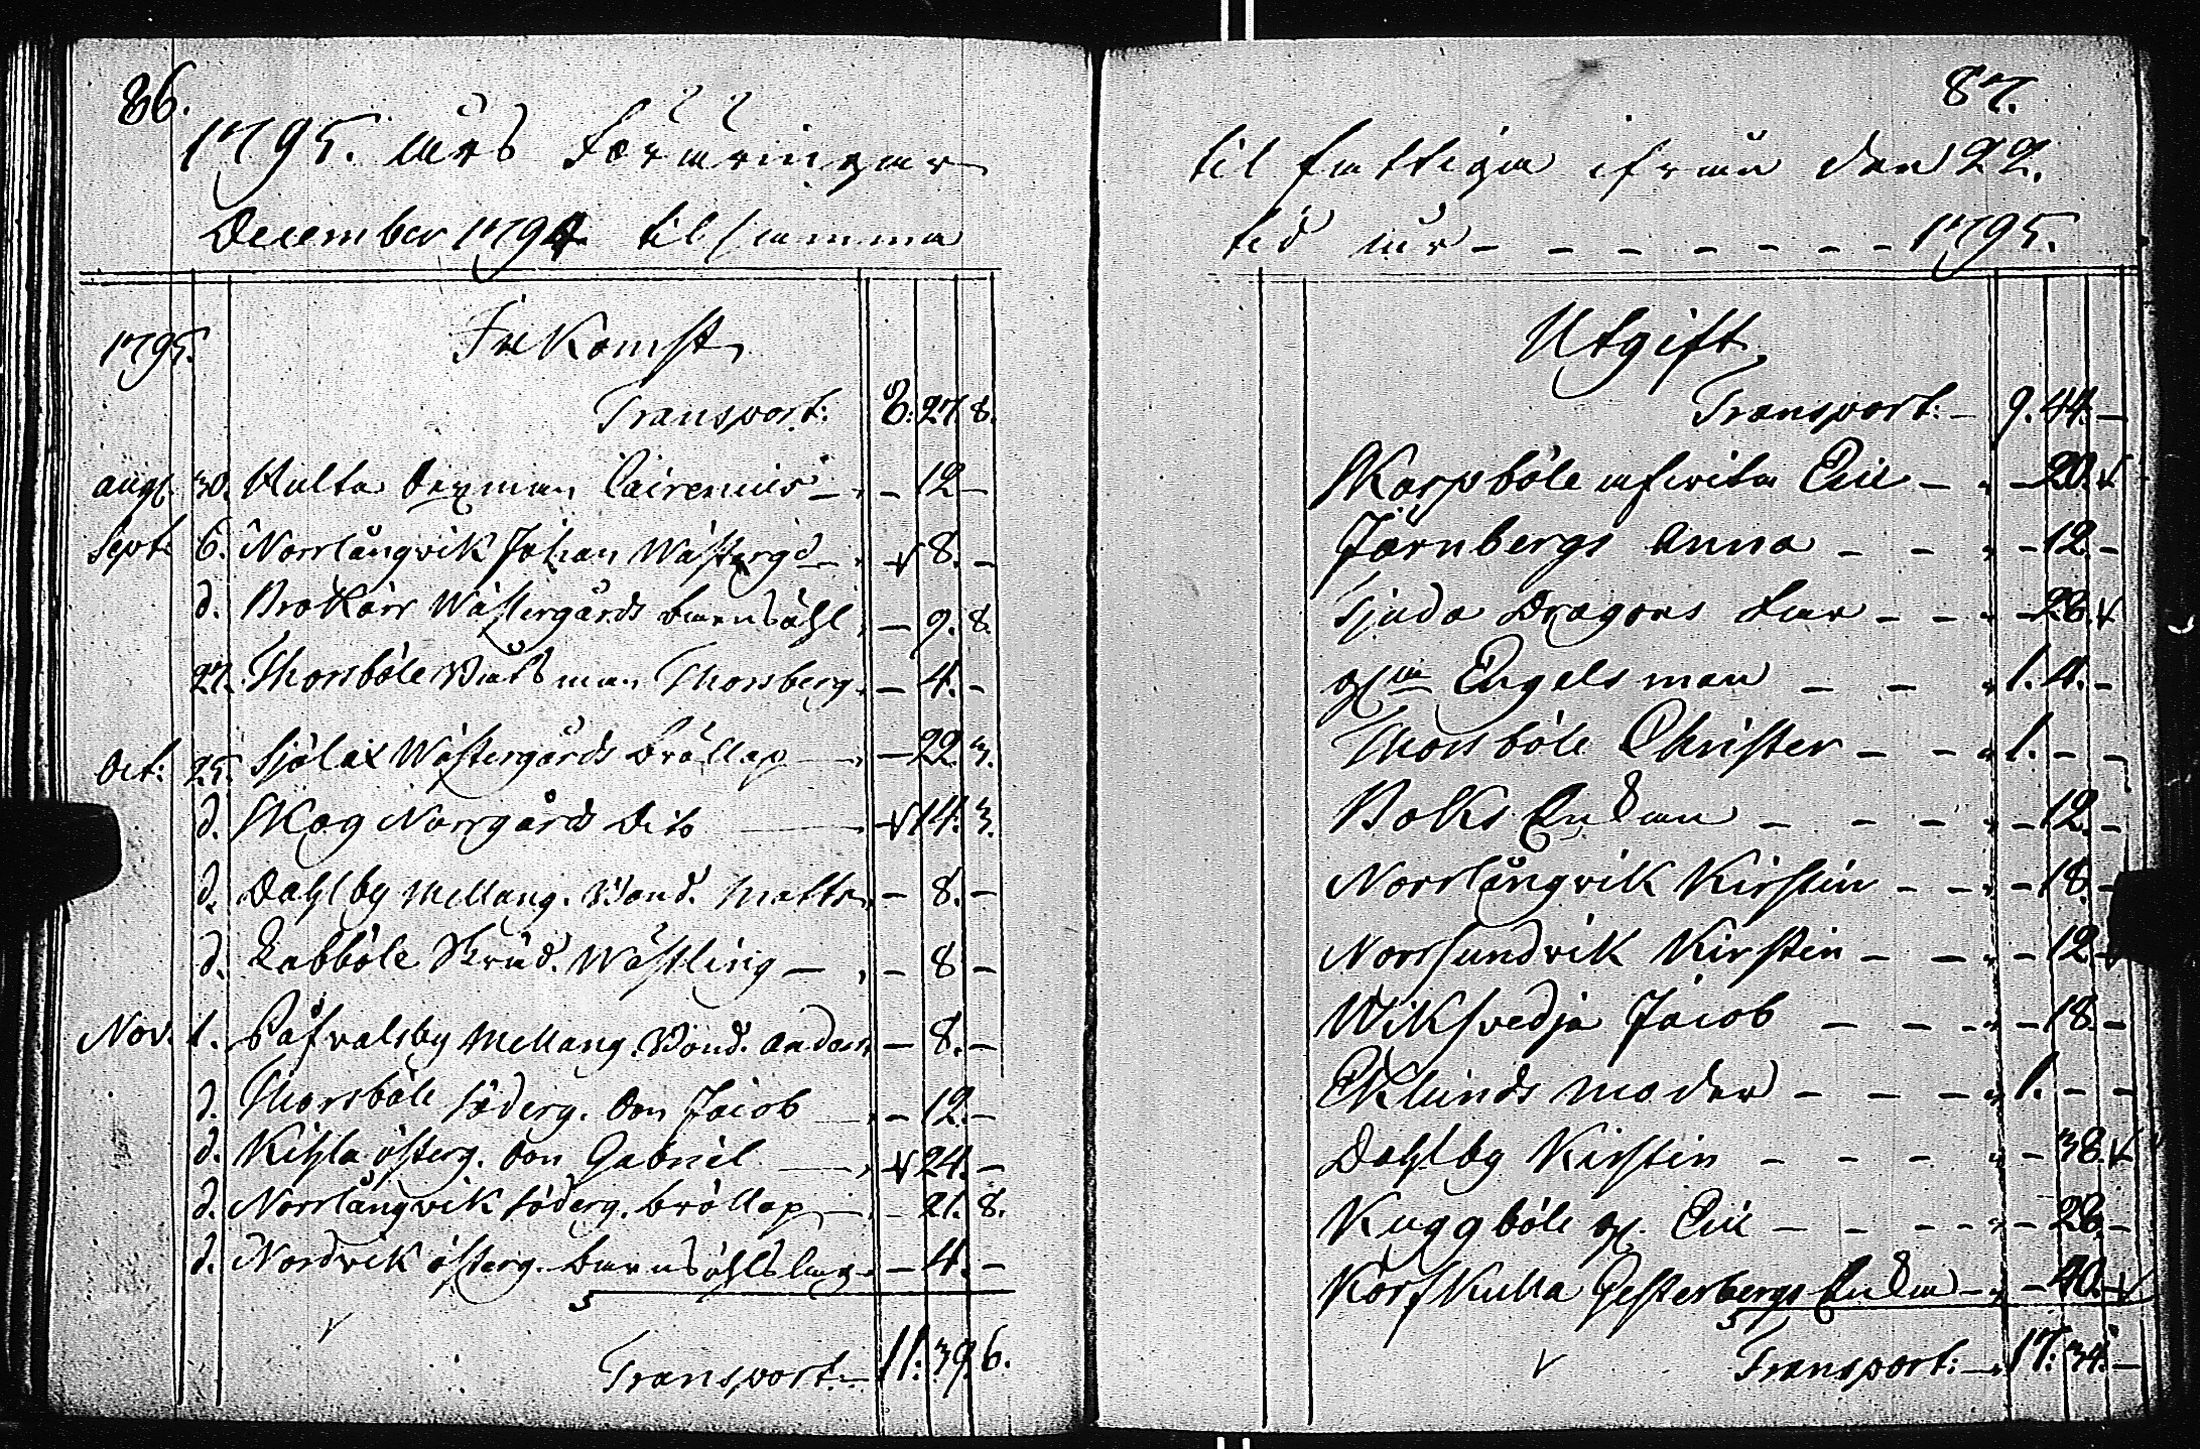 86.
1795. års Föräringar
December 1794 til samma
1795.
InKomst
Transport: 8: 27. 8.
aug. 30. Hulta Oxman - - 12 -
Sept. 6. Norrlångvik Johan Wästergd - - 8. -
d. BroKärr Wästergårds barnsöhl - 9. 8.
27. Thorsböle Båtsman Thorsberg. - 4. -
Oct: 25. Sjölax Wästergårds bröllop - 22. 3.
d. Skog Norrgårds Dito - 14. 3.
d. Dahlby Mellang. Bond. Matts - 8. -
d. Labböle Skräd. Wästling - - 8 -
Nov. 1. Påfvalsby Mellang. Bond. anders - 8. -
d. Thorsböle söderg. Bon Jacob - 12. -
d. Kihla österg. Bon Gabriel - 24. -
d. Norrlångvik söderg. bröllop - 21. 8.
d. Nordvik österg. barnsöhlslag - 4. -
Transport - 11. 39. 6.
87.
til fattiga ifrån den 22.
tid år - - - - - - - 1795.
Utgift
Transport: - 9. 44. -
Skarpböle afsvita Eric - - 20.
Järnbergs anna - - - 12. -
Tjuda Dragons Far - - - 28.
gl. Engelsman - - 1. 4. -
Thorsböle Christer - - 1. - -
Boks Enkan - - - - 12. -
Norrlångvik Kirstin - - - 18. -
Norrsundvik Kirstin - - - 12.
Wiksvedja Jacob - - - - 18. -
Eklunds moder - - - 1. - -
Dahlby Kirstin - - - - 38.
Kuggböle gl. Eric - - - - 28. -
Körskulla Gesterbergs Enka - - 40. -
Transport: - 17: 34. -